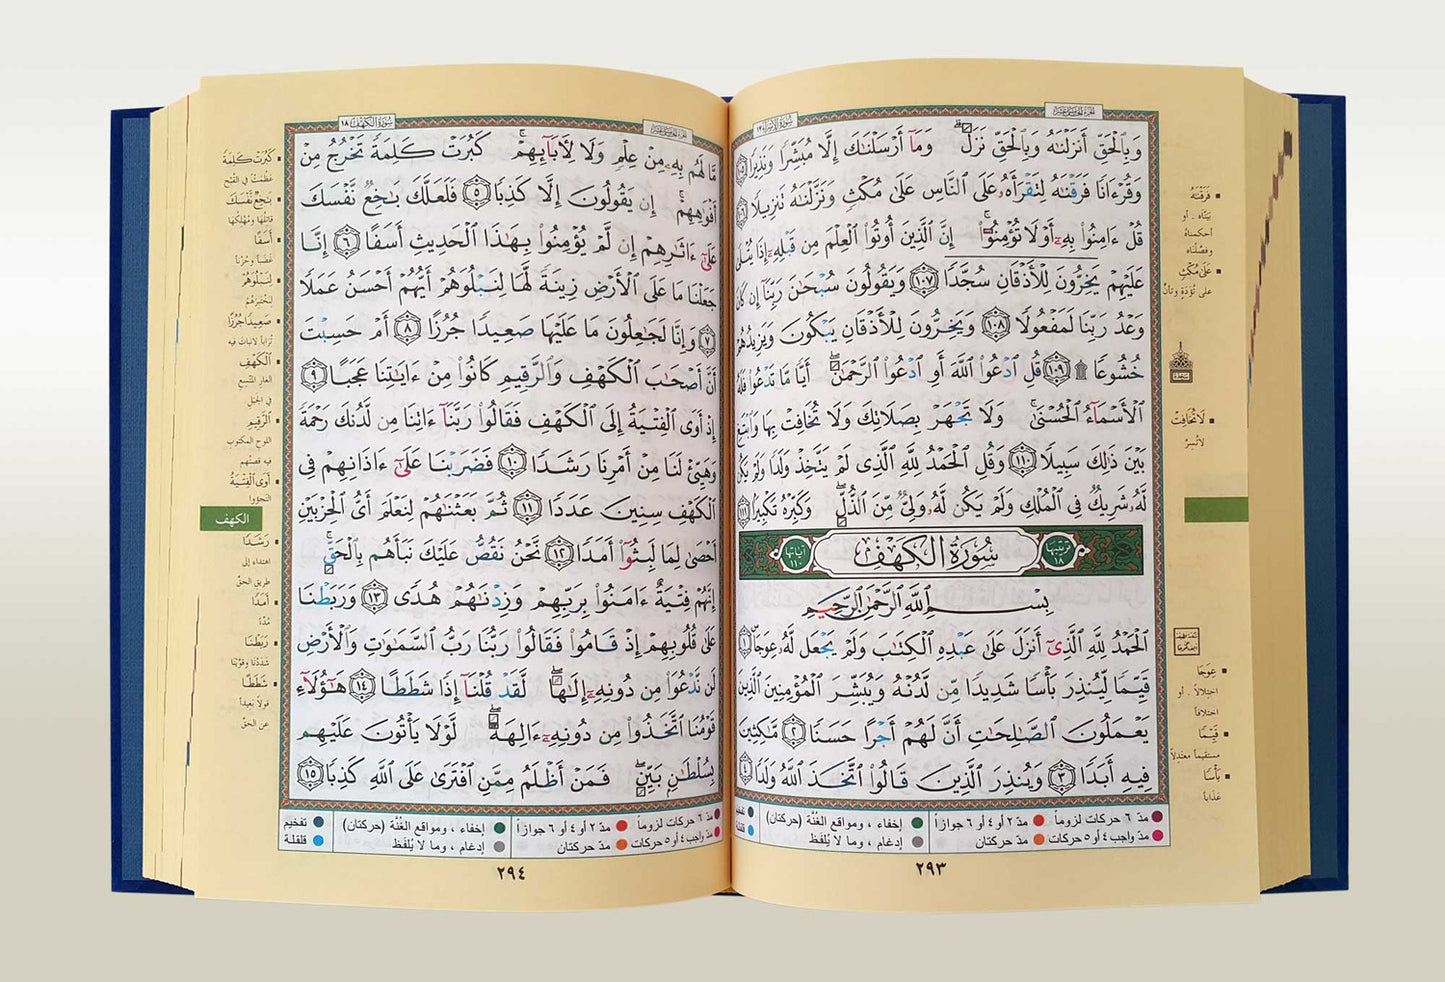 سُورَةُ الإِسْرَاء ١٧
الجزء الخامس عشر
وَبِٱلْحَقِّ أَنزَلْنَٰهُ وَبِٱلْحَقِّ نَزَلَ ۗ وَمَآ أَرْسَلْنَٰكَ إِلَّا مُبَشِّرًا وَنَذِيرًا ١٠٥
وَقُرْءَانًا فَرَقْنَٰهُ لِتَقْرَأَهُۥ عَلَى ٱلنَّاسِ عَلَىٰ مُكْثٍ وَنَزَّلْنَٰهُ تَنزِيلًا ١٠٦
قُلْ ءَامِنُوا۟ بِهِۦٓ أَوْ لَا تُؤْمِنُوٓا۟ ۚ إِنَّ ٱلَّذِينَ أُوتُوا۟ ٱلْعِلْمَ مِن قَبْلِهِۦٓ إِذَا يُتْلَىٰ
عَلَيْهِمْ يَخِرُّونَ لِلْأَذْقَانِ سُجَّدًا ١٠٧ وَيَقُولُونَ سُبْحَٰنَ رَبِّنَآ إِن كَانَ
وَعْدُ رَبِّنَا لَمَفْعُولًا ١٠٨ وَيَخِرُّونَ لِلْأَذْقَانِ يَبْكُونَ وَيَزِيدُهُمْ
خُشُوعًا ۩ ١٠٩ قُلِ ٱدْعُوا۟ ٱللَّهَ أَوِ ٱدْعُوا۟ ٱلرَّحْمَٰنَ ۖ أَيًّا مَّا تَدْعُوا۟ فَلَهُ
ٱلْأَسْمَآءُ ٱلْحُسْنَىٰ ۚ وَلَا تَجْهَرْ بِصَلَاتِكَ وَلَا تُخَافِتْ بِهَا وَٱبْتَغِ
بَيْنَ ذَٰلِكَ سَبِيلًا ١١٠ وَقُلِ ٱلْحَمْدُ لِلَّهِ ٱلَّذِى لَمْ يَتَّخِذْ وَلَدًا وَلَمْ يَكُن
لَّهُۥ شَرِيكٌ فِى ٱلْمُلْكِ وَلَمْ يَكُن لَّهُۥ وَلِىٌّ مِّنَ ٱلذُّلِّ ۖ وَكَبِّرْهُ تَكْبِيرًا ١١١
ترتيبها ١٨ سُورَةُ الكَهْفِ آياتها ١١٠
بِسْمِ ٱللَّهِ ٱلرَّحْمَٰنِ ٱلرَّحِيمِ
ٱلْحَمْدُ لِلَّهِ ٱلَّذِىٓ أَنزَلَ عَلَىٰ عَبْدِهِ ٱلْكِتَٰبَ وَلَمْ يَجْعَل لَّهُۥ عِوَجَا ١
قَيِّمًا لِّيُنذِرَ بَأْسًا شَدِيدًا مِّن لَّدُنْهُ وَيُبَشِّرَ ٱلْمُؤْمِنِينَ ٱلَّذِينَ
يَعْمَلُونَ ٱلصَّٰلِحَٰتِ أَنَّ لَهُمْ أَجْرًا حَسَنًا ٢ مَّٰكِثِينَ
فِيهِ أَبَدًا ٣ وَيُنذِرَ ٱلَّذِينَ قَالُوا۟ ٱتَّخَذَ ٱللَّهُ وَلَدًا ٤
فَرَقْنَٰهُ
بيّناه . أو
أحكمناه
وفصّلناه
عَلَىٰ مُكْثٍ
على تُؤَدَةٍ وتأنٍّ
لَا تُخَافِتْ
لا تُسِرّ
عِوَجَا
اختلالاً . أو
اختلافاً
قَيِّمًا
مستقيماً معتدلاً
بَأْسًا
عذاباً
مدّ ٦ حركات لزوماً مدّ ٢ أو ٤ أو ٦ جوازاً إخفاء ، ومواقع الغُنّة (حركتان) تفخيم
مدّ واجب ٤ أو ٥ حركات مدّ حركتان إدغام ، وما لا يُلفظ قلقلة
٢٩٣
الجزء الخامس عشر
سُورَةُ الكَهْفِ ١٨
مَّا لَهُم بِهِۦ مِنْ عِلْمٍ وَلَا لِـَٔابَآئِهِمْ ۚ كَبُرَتْ كَلِمَةً تَخْرُجُ مِنْ
أَفْوَٰهِهِمْ ۚ إِن يَقُولُونَ إِلَّا كَذِبًا ٥ فَلَعَلَّكَ بَٰخِعٌ نَّفْسَكَ
عَلَىٰٓ ءَاثَٰرِهِمْ إِن لَّمْ يُؤْمِنُوا۟ بِهَٰذَا ٱلْحَدِيثِ أَسَفًا ٦ إِنَّا
جَعَلْنَا مَا عَلَى ٱلْأَرْضِ زِينَةً لَّهَا لِنَبْلُوَهُمْ أَيُّهُمْ أَحْسَنُ عَمَلًا
٧ وَإِنَّا لَجَٰعِلُونَ مَا عَلَيْهَا صَعِيدًا جُرُزًا ٨ أَمْ حَسِبْتَ
أَنَّ أَصْحَٰبَ ٱلْكَهْفِ وَٱلرَّقِيمِ كَانُوا۟ مِنْ ءَايَٰتِنَا عَجَبًا ٩
إِذْ أَوَى ٱلْفِتْيَةُ إِلَى ٱلْكَهْفِ فَقَالُوا۟ رَبَّنَآ ءَاتِنَا مِن لَّدُنكَ رَحْمَةً
وَهَيِّئْ لَنَا مِنْ أَمْرِنَا رَشَدًا ١٠ فَضَرَبْنَا عَلَىٰٓ ءَاذَانِهِمْ فِى
ٱلْكَهْفِ سِنِينَ عَدَدًا ١١ ثُمَّ بَعَثْنَٰهُمْ لِنَعْلَمَ أَىُّ ٱلْحِزْبَيْنِ
أَحْصَىٰ لِمَا لَبِثُوٓا۟ أَمَدًا ١٢ نَّحْنُ نَقُصُّ عَلَيْكَ نَبَأَهُم بِٱلْحَقِّ ۚ
إِنَّهُمْ فِتْيَةٌ ءَامَنُوا۟ بِرَبِّهِمْ وَزِدْنَٰهُمْ هُدًى ١٣ وَرَبَطْنَا
عَلَىٰ قُلُوبِهِمْ إِذْ قَامُوا۟ فَقَالُوا۟ رَبُّنَا رَبُّ ٱلسَّمَٰوَٰتِ وَٱلْأَرْضِ
لَن نَّدْعُوَا۟ مِن دُونِهِۦٓ إِلَٰهًا ۖ لَّقَدْ قُلْنَآ إِذًا شَطَطًا ١٤ هَٰٓؤُلَآءِ
قَوْمُنَا ٱتَّخَذُوا۟ مِن دُونِهِۦٓ ءَالِهَةً ۖ لَّوْلَا يَأْتُونَ عَلَيْهِم
بِسُلْطَٰنٍۭ بَيِّنٍ ۖ فَمَنْ أَظْلَمُ مِمَّنِ ٱفْتَرَىٰ عَلَى ٱللَّهِ كَذِبًا ١٥
كَبُرَتْ كَلِمَةً
عَظُمَتْ في القُبْح
بَٰخِعٌ نَّفْسَكَ
قاتلها ومُهلكها
أَسَفًا
غضباً وحُزناً
لِنَبْلُوَهُمْ
لنختبرهم
صَعِيدًا جُرُزًا
تُراباً لا نبات فيه
ٱلْكَهْفِ
الغار المتّسع
في الجبل
ٱلرَّقِيمِ
اللوح المكتوب
فيه قصتهم
أَوَى ٱلْفِتْيَةُ
التجؤوا
الكهف
رَشَدًا
اهتداء إلى
طريق الحقّ
أَمَدًا
مُدّة
رَبَطْنَا
شدَدْنا وقوّينا
شَطَطًا
قولاً بعيداً
عن الحقّ
مدّ ٦ حركات لزوماً مدّ ٢ أو ٤ أو ٦ جوازاً إخفاء ، ومواقع الغُنّة (حركتان) تفخيم
مدّ واجب ٤ أو ٥ حركات مدّ حركتان إدغام ، وما لا يُلفظ قلقلة
٢٩٤